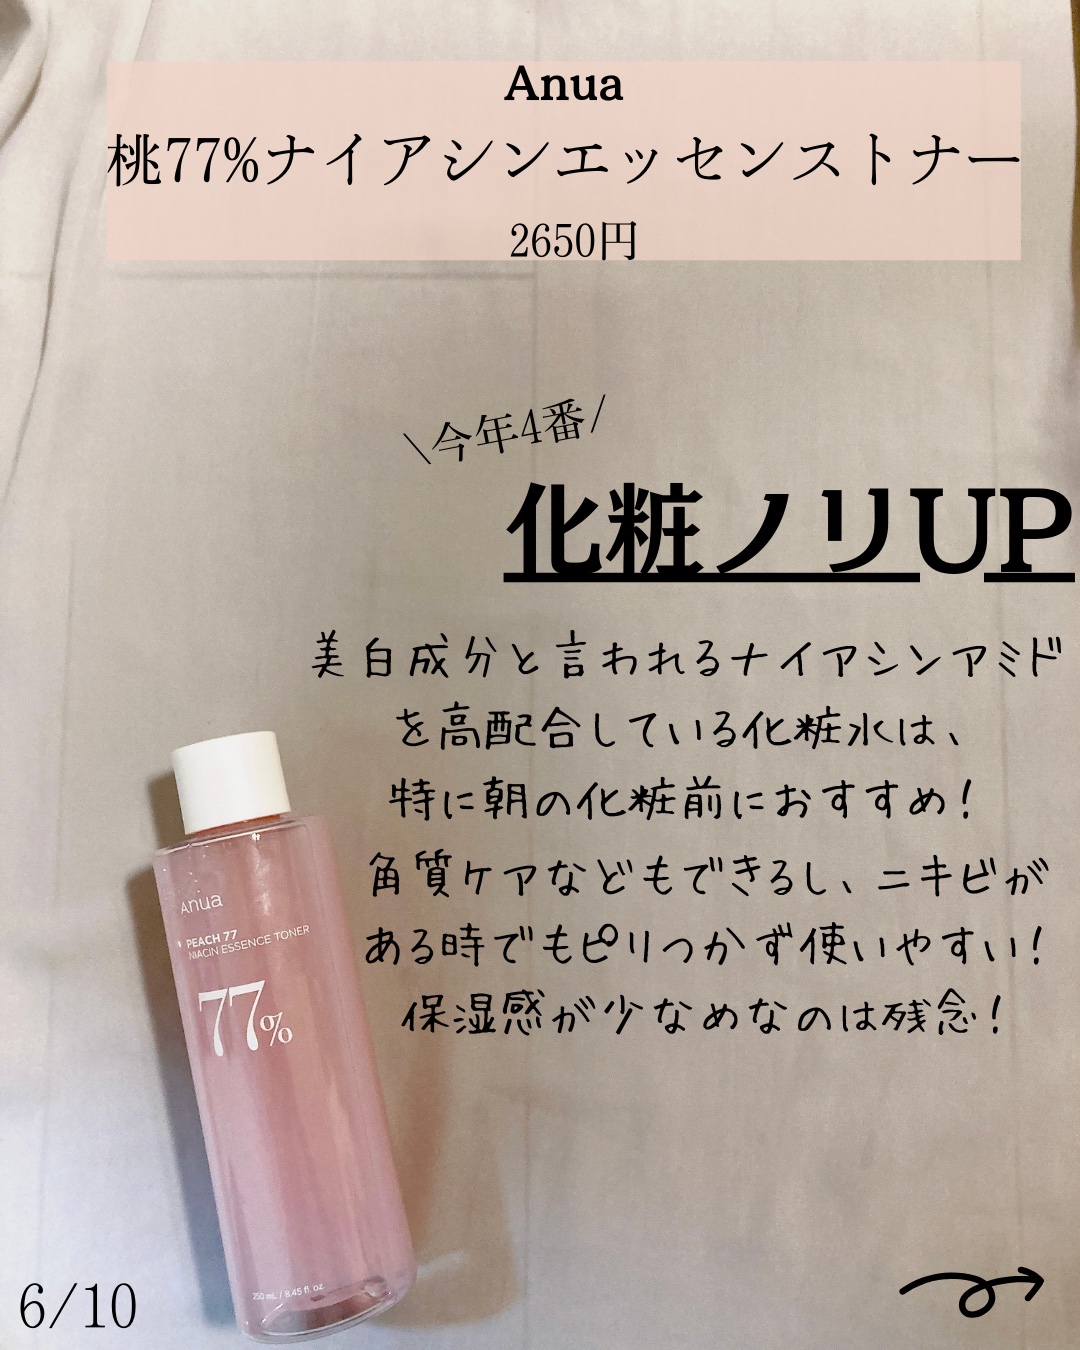 Anua
桃77%ナイアシンエッセンストナー
2650円
\今年4番/
化粧ノリUP
美白成分と言われるナイアシンアミド
を高配合している化粧水は、
特に朝の化粧前におすすめ!
角質ケアなどもできるし、ニキビが
ある時でもピリつかず使いやすい!
保湿感が少なめなのは残念!
Anua
PEACH 77
NIACIN ESSENCE TONER
77%
250 mL / 8.45 fl. oz.
6/10